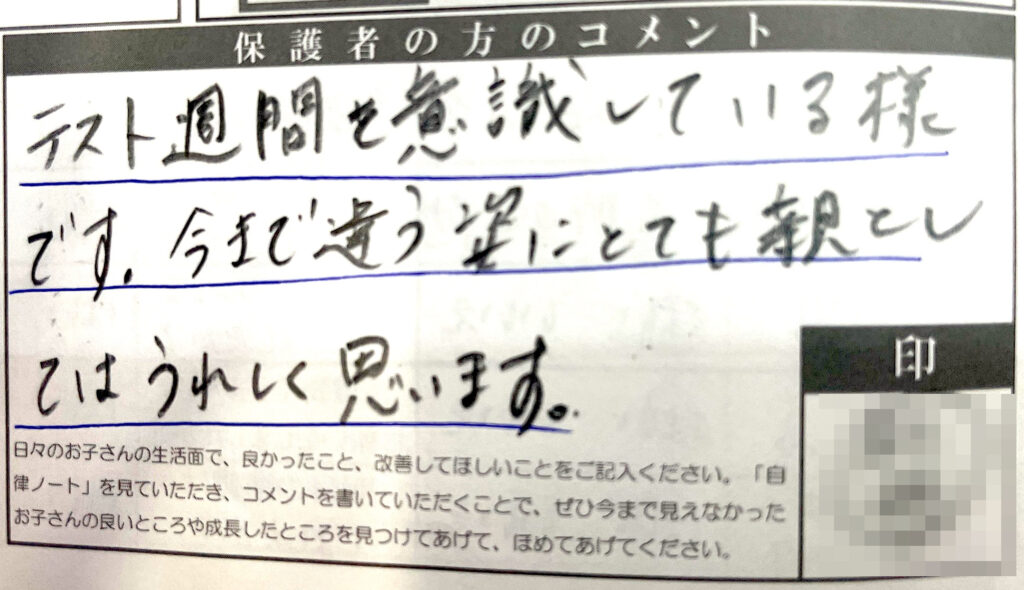 保護者の方のコメント
テスト週間を意識している様
です。今まで違う姿にとても親とし
てはうれしく思います。
印
日々のお子さんの生活面で、良かったこと、改善してほしいことをご記入ください。「自
律ノート」を見ていただき、コメントを書いていただくことで、ぜひ今まで見えなかった
お子さんの良いところや成長したところを見つけてあげて、ほめてあげてください。